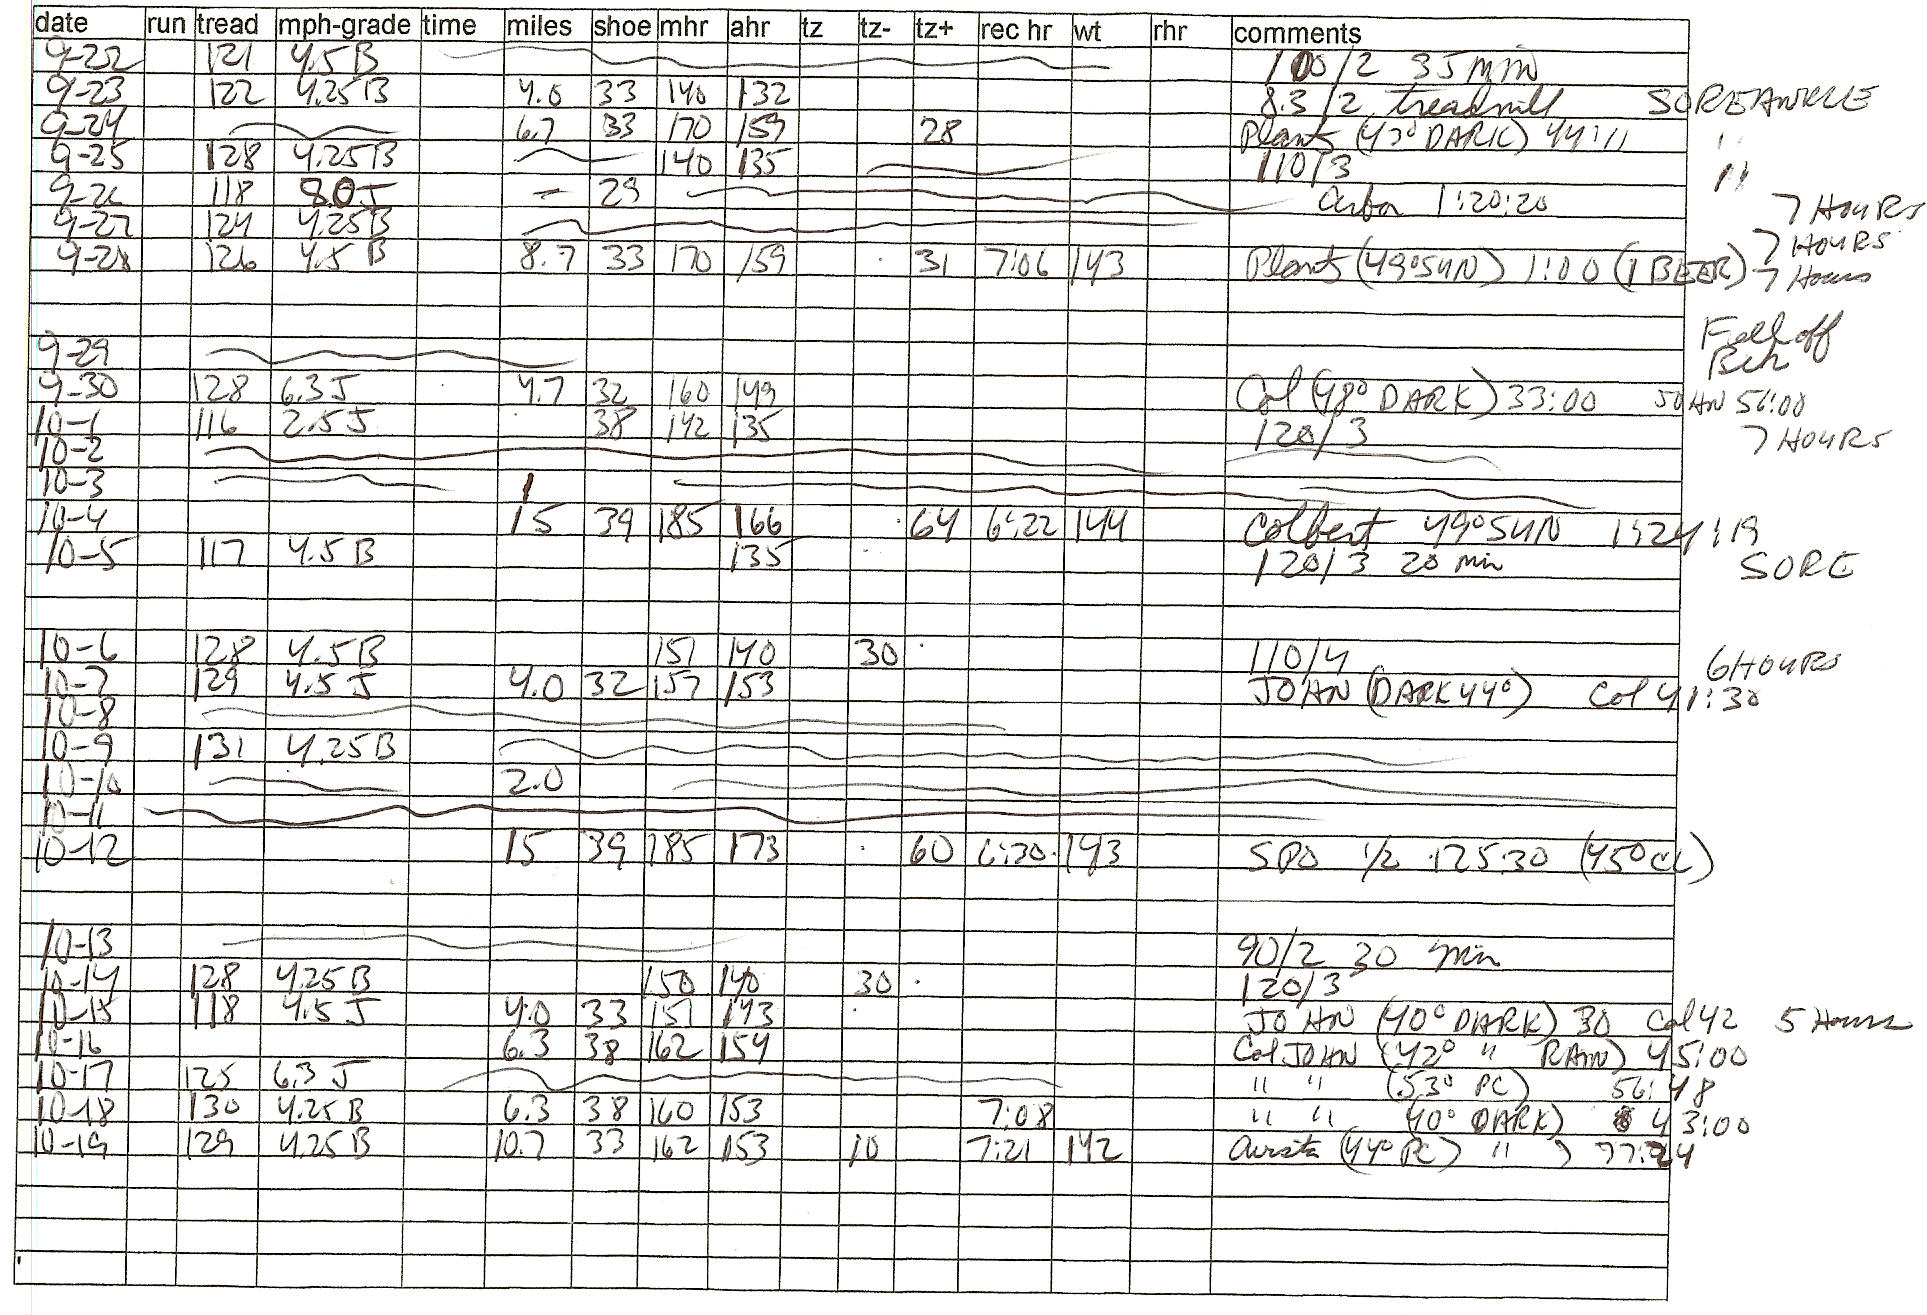 date run tread mph-grade time miles shoe mhr ahr tz tz- tz+ rec hr wt rhr comments
9-22 121 4.5 B 100/2 35 min
9-23 122 4.25 B 4.0 33 140 132 8.3/2 treadmill SORE ANKLE
9-24 6.7 33 170 159 28 Plants (43° DARK) 44:11 "
9-25 128 4.25 B 140 135 110/3 "
9-26 118 8.0 J - 29 1:20:20 7 HOURS
9-27 124 4.25 B 7 HOURS
9-28 126 4.5 B 8.7 33 170 159 31 7:06 143 Plants (49° SUN) 1:00 (1 BEER) 7 Hours
Fell off
9-29
9-30 128 6.3 J 4.7 32 160 149 Col (48° DARK) 33:00 JOHN 56:00
10-1 116 2.5 J 38 142 135 120/3 7 HOURS
10-2
10-3 1
10-4 15 39 185 166 64 6:22 144 Colbert 49° SUN 1:24:19
10-5 117 4.5 B 135 120/3 20 min SORE
10-6 128 4.5 B 151 140 30 110/4 6 HOURS
10-7 129 4.5 J 4.0 32 157 153 JOHN (DARK 44°) Col 41:30
10-8
10-9 131 4.25 B
10-10 2.0
10-11
10-12 15 39 185 173 60 6:30 143 SPO 1/2 1:25:30 (45° CL)
10-13 90/2 30 min
10-14 128 4.25 B 150 140 30 120/3
10-15 118 4.5 J 4.0 33 151 143 JOHN (40° DARK) 30 Col 42 5 Hours
10-16 6.3 38 162 154 Col JOHN (42° " RAIN) 45:00
10-17 125 6.3 J " " (53° PC) 56:48
10-18 130 4.25 B 6.3 38 160 153 7:08 " " (40° DARK) 43:00
10-19 129 4.25 B 10.7 33 162 153 10 7:21 142 (44° PC) " 77:24